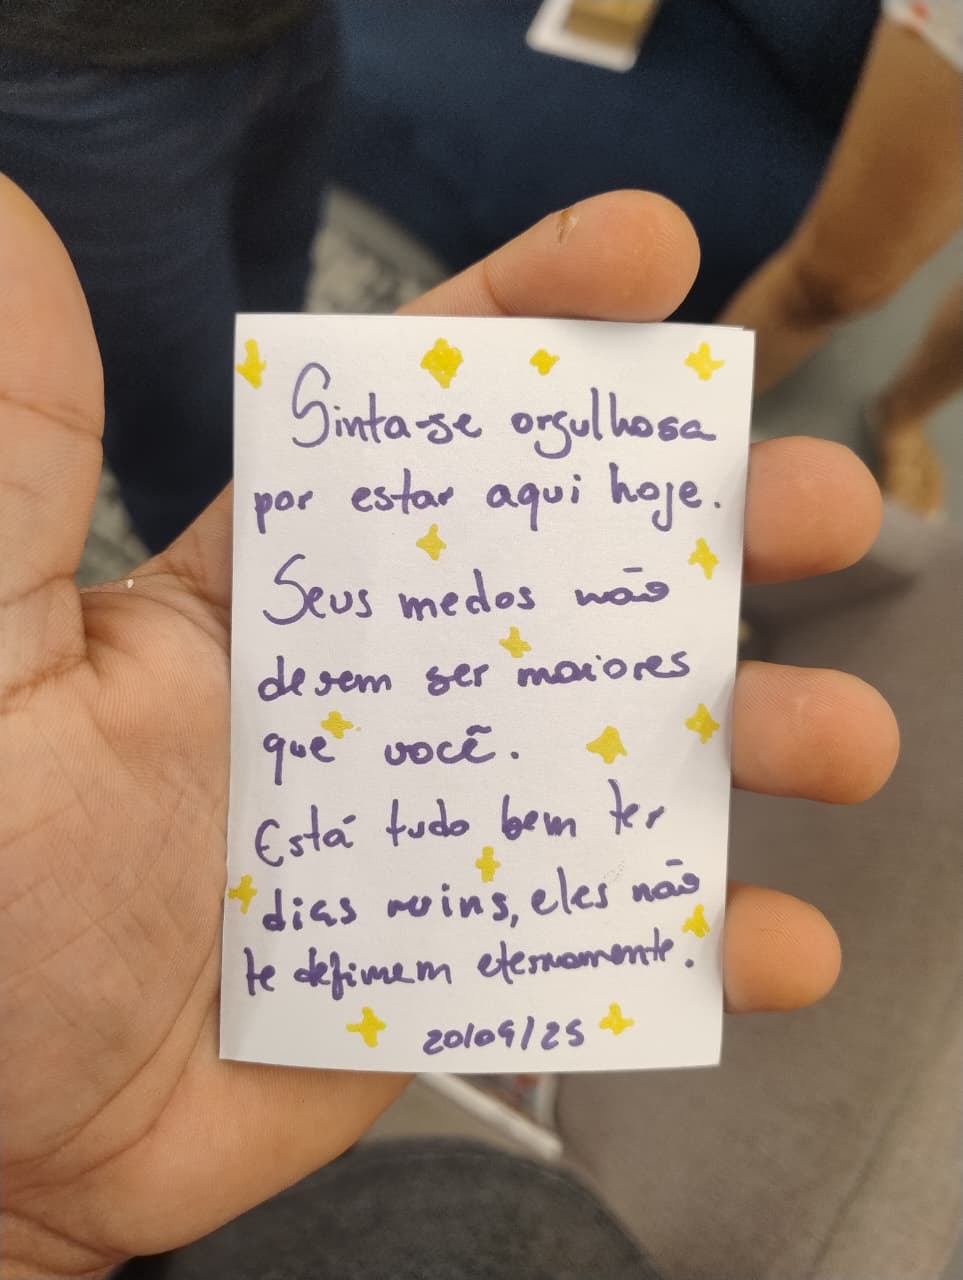 Sinta-se orgulhosa
por estar aqui hoje.
Seus medos não
devem ser maiores
que você.
Está tudo bem ter
dias ruins, eles não
te definem eternamente.
20/09/25